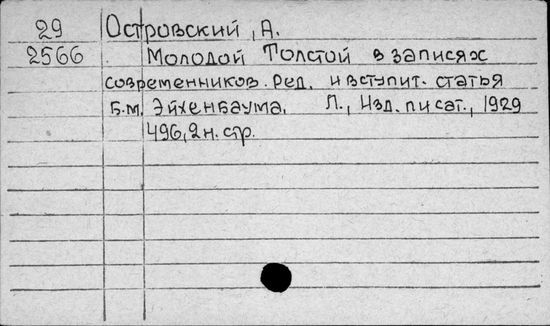 29 Островский, А.
2566 Молодой Толстой в записях
современников. Ред. и вступит. статья
Б.М. Эйхенбаума. Л., Изд. писат., 1929
496,2 н. стр.